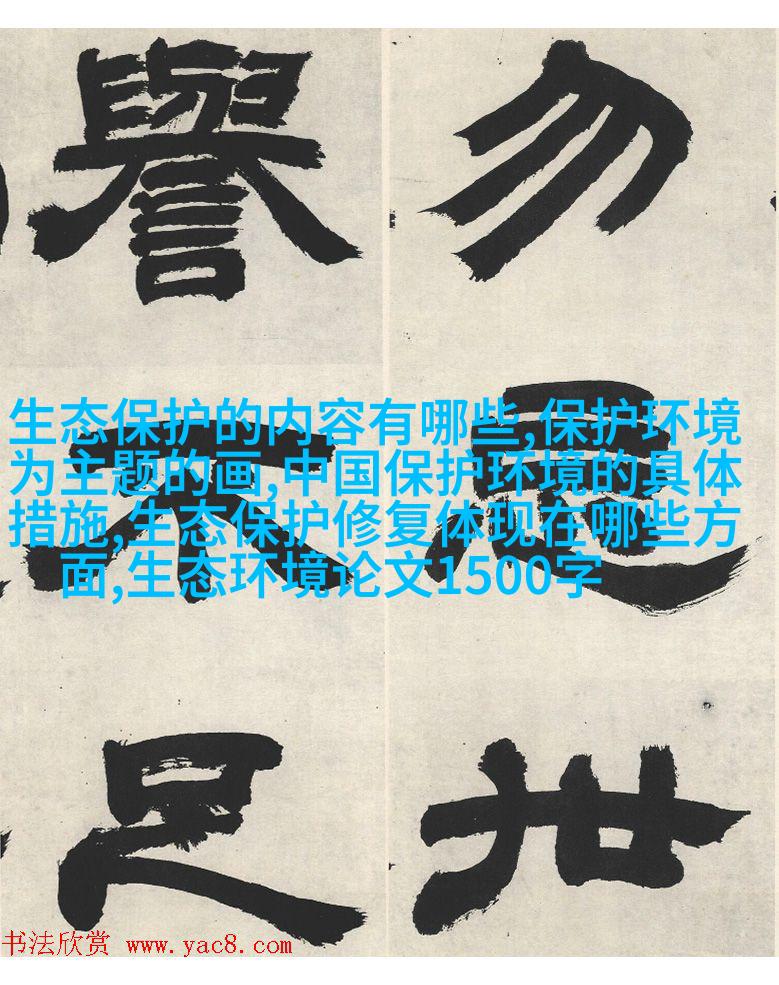 勿忘世
譽不足
生态保护的内容有哪些,保护环境
为主题的画,中国保护环境的具体
措施,生态保护修复体现在哪些方
面,生态环境论文1500字
书法欣赏 www.yac8.com